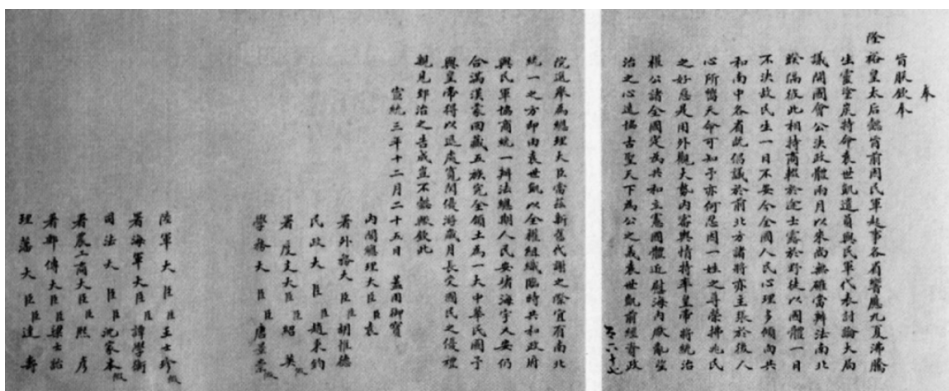 奉
旨朕欽奉
隆裕皇太后懿旨前因民軍起事各省響應九夏沸騰
生靈塗炭特命袁世凱遣員與民軍代表討論大局
議開國會公決政體兩月以來尚無確當辦法南北
暌隔彼此相持商輟於途士露於野徒以國體一日
不決故民生一日不安今全國人民心理多傾向共
和南中各省既倡議於前北方諸將亦主張於後人
心所嚮天命可知予亦何忍因一姓之尊榮拂兆民
之好惡是用外觀大勢內審輿情特率皇帝將統治
權公諸全國定為共和立憲國體近慰海內厭亂望
治之心遠協古聖天下為公之義袁世凱前經資政
院選舉為總理大臣當茲新舊代謝之際宜有南北
統一之方即由袁世凱以全權組織臨時共和政府
與民軍協商統一辦法總期人民安堵海宇乂安仍
合滿漢蒙回藏五族完全領土為一大中華民國予
與皇帝得以退處寬閒優游歲月長受國民之優禮
親見郅治之告成豈不懿歟欽此
宣統三年十二月二十五日 蓋用御寶
內閣總理大臣袁
署外務大臣胡惟德
民政大臣趙秉鈞
署度支大臣紹英假
學務大臣唐景崇假
陸軍大臣王士珍假
署海軍大臣譚學衡
司法大臣沈家本假
署農工商大臣熙彥
署郵傳大臣梁士詒假
理藩大臣達壽